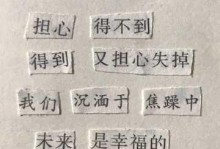 担心 得不到
得到 又担心失掉
我们 沉湎于 焦躁中
未来 是幸福的